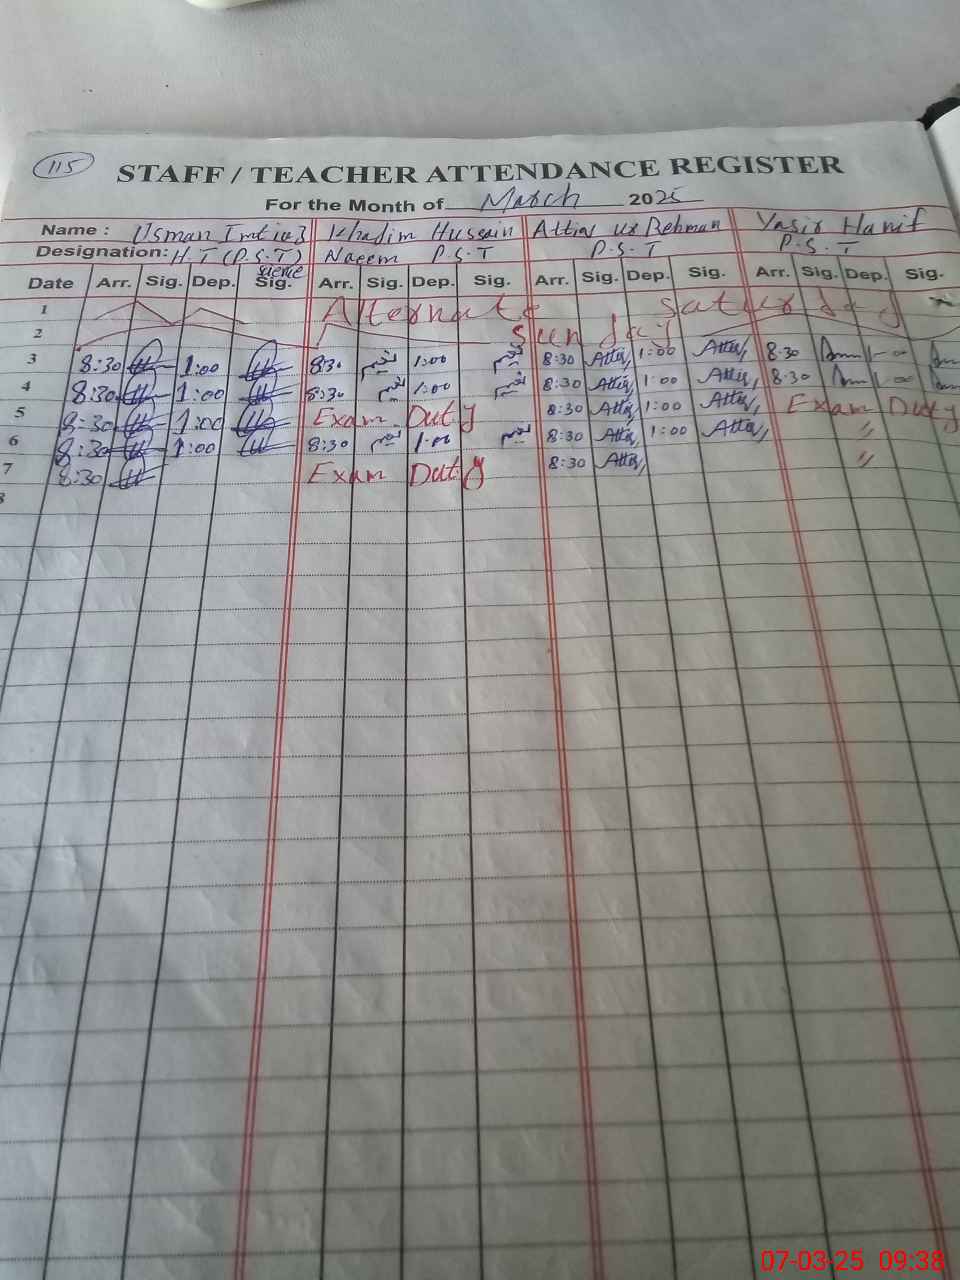 115
STAFF / TEACHER ATTENDANCE REGISTER
For the Month of March 2025
Name : Usman Imtiaz Khadim Hussain Attiq ur Rehman Yasir Hanif
Designation: H.T (P.S.T) Naeem P.S.T P.S.T P.S.T
Date Arr. Sig. Dep. Sig. Arr. Sig. Dep. Sig. Arr. Sig. Dep. Sig. Arr. Sig. Dep. Sig.
1 Alternate Saturday
2 Sunday
3 8:30 1:00 8:30 نعیم 1:00 نعیم 8:30 Attiq 1:00 Attiq 8:30 1:00
4 8:30 1:00 8:30 نعیم 1:00 نعیم 8:30 Attiq 1:00 Attiq 8:30 1:00
5 8:30 1:00 Exam Duty 8:30 Attiq 1:00 Attiq Exam Duty
6 8:30 1:00 8:30 نعیم 1:00 نعیم 8:30 Attiq 1:00 Attiq "
7 8:30 Exam Duty 8:30 Attiq "
8
07-03-25 09:38